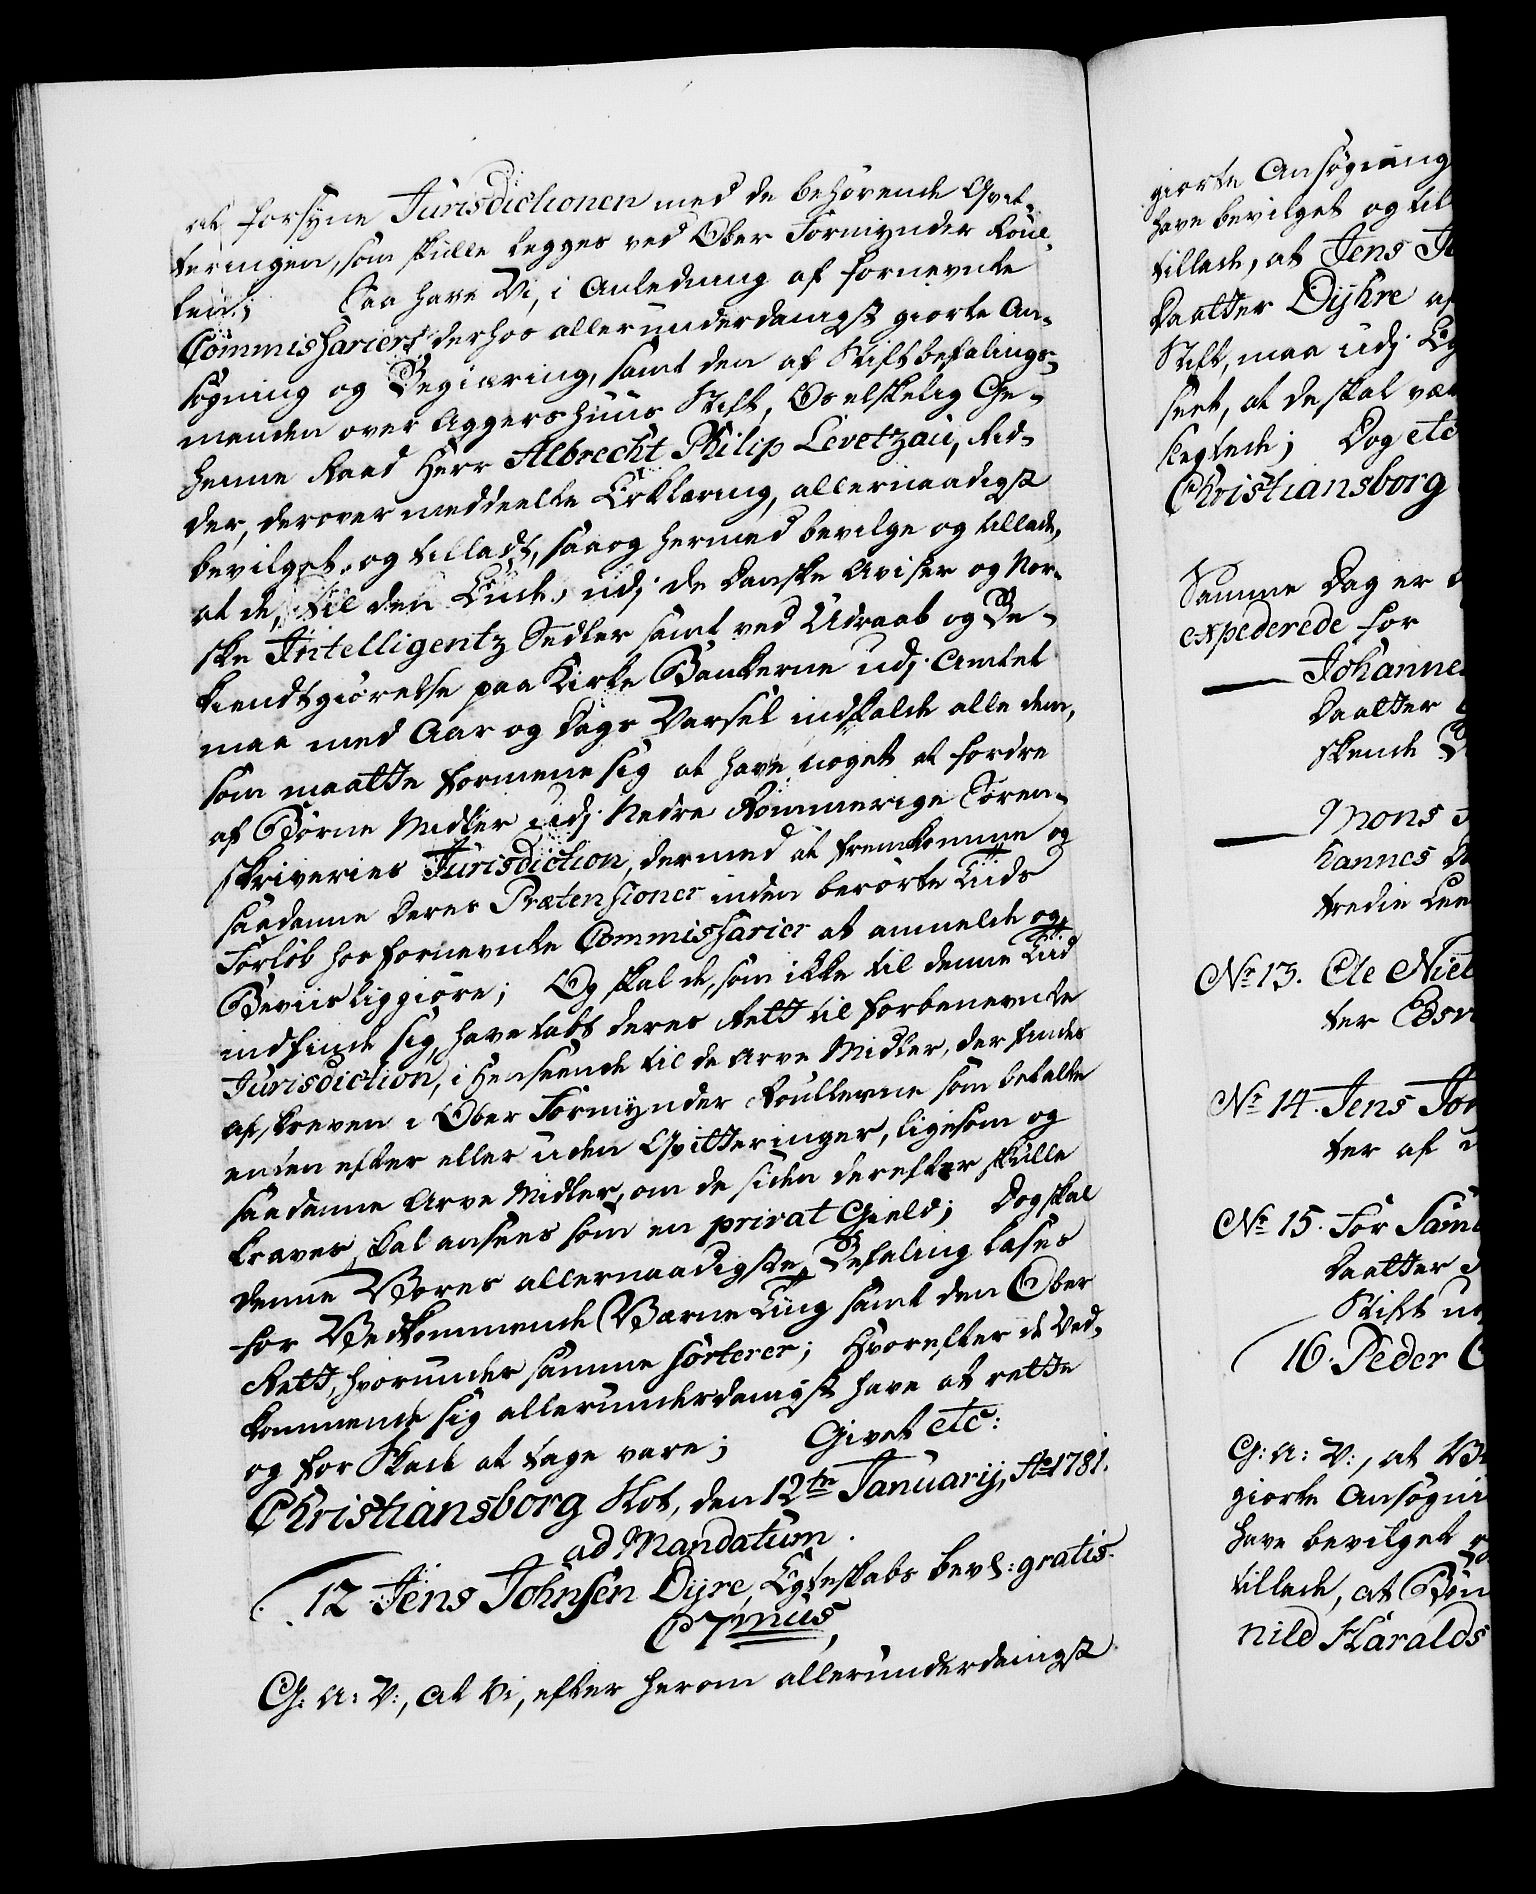 at forsyne Jurisdictionen med de behørende Qvit-
teringer, som skulle legges ved Ober Formynder Roul-
len; Saa have Vi, i Anledning af fornevnte
Commissariers derhos allerunderdanigst giorte An-
søgning og Begiæring, samt den af Stiftbefalings-
manden over Aggershuus Stift, Os elskelig Ge-
heime Raad Herr Albrecht Philip Levetzau, Rid-
der, derover meddeelte Erklæring, allernaadigst
bevilget og tilladt, saa og hermed bevilge og tillade,
at de, til den Ende, udj de Danske Aviser og Nor-
ske Intelligentz Sedler samt ved Udraab og Be-
kiendtgiørelse paa Kirke Bankerne udj Amtet
maa med Aar og Dags Varsel indkalde alle dem,
som maatte formene sig at have noget at fordre
af Børne Midler udj Nedre Rommerige Soren-
skriveries Jurisdiction, dermed at fremkomme og
saadanne deres Prætensioner inden berørte Tiids
Forløb hos fornevnte Commissarier at anmelde og
Beviisliggiøre; Og skal de, som ikke til denne Tiid
indfinde sig, have tabt deres Rett til forbenevnte
Jurisdiction, i Henseende til de Arve Midler, der findes
afskreven i Ober Formynder Roullerne som betalte
enten efter eller uden Qvitteringer, ligesom og
saadanne Arve Midler, om de siden derefter skulle
kraves, skal ansees som en privat Gield; Dog skal
denne Vores allernaadigste Befaling læses
for Vedkommende Værne Ting samt den Ober
Rett, hvorunder samme sorterer; Hvorefter de Ved-
kommende sig allerunderdanigst have at rette
og for Skade at tage vare; Givet etc:
Christiansborg Slot, den 12te Januarij, Ao 1781.
ad Mandatum.
12 Jens Johnsen Dyre, Egteskabs bevl: gratis.
C 7mus,
G: A: V:, at Vi, efter herom allerunderdanigst
giorte Ansøgning
have bevilget og til
tillade, at Jens
Daatter Dyhre af
Stift, maa udj
seet, at de skal vær
Dog etc
Christiansborg
Samme Dag er
expederede for
Johanne
Daatter
skende
Mons
hannes
tredie Lee
No 13. Ole Niel
ter
No 14. Jens
ter af
No 15. For
Daatter
Stift
16. Peder
G: A: V:, at
giorte Ansøgni
have bevilget
tillade, at
nild Haralds